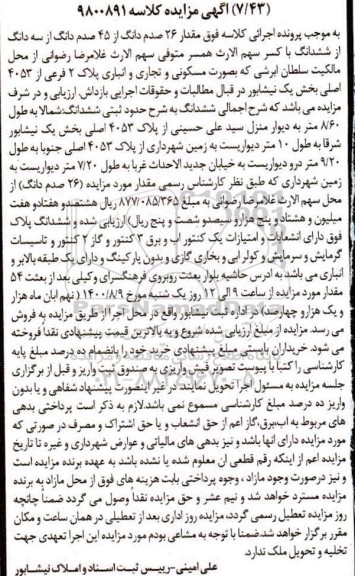 (۷/۴۳) آگهی مزایده کلاسه ۹۸۰۰۸۹۱
به موجب پرونده اجرائی کلاسه فوق مقدار ۲۶ صدم دانگ از ۴۵ صدم دانگ از سه دانگ
از ششدانگ با کسر سهم الارث همسر متوفی سهم الارث غلامرضا رضوانی از محل
مالکیت سلطان ابرشی که بصورت مسکونی و تجاری و انباری پلاک ۲ فرعی از ۴۰۵۳
اصلی بخش یک نیشابور در قبال مطالبات و حقوقات اجرایی بازداش ارزیابی و در شرف
مزایده می باشد که شرح اجمالی ششدانگ به شرح حدود ثبتی ششدانگ:شمالا به طول
۸/۶۰ متر به دیوار منزل سید علی حسینی از پلاک ۴۰۵۳ اصلی بخش یک نیشابور
شرقا به طول ۱۰ متر دیواریست به زمین شهرداری از پلاک ۴۰۵۳ اصلی جنوبا به طول
۹/۲۰ متر درو دیواریست به خیابان جدید الاحداث غربا به طول ۷/۲۰ متر دیواریست به
زمین شهرداری که طبق نظر کارشناس رسمی مقدار مورد مزایده (۲۶ صدم دانگ) از
محل سهم الارث غلامرضا رضوانی به مبلغ ۸۷۷/۰۸۵/۳۶۵ ریال هشتصدو هفتادو هفت
میلیون و هشتاد و پنج هزارو سیصدو شصت و پنج ریال) ارزیابی شده و ششدانگ پلاک
فوق دارای انشعابات و امتیازات یک کنتور اب و برق ۳ کنتور و گاز ۲ کنتور و تاسیسات
گرمایش و سرمایش و کولر ابی و بخاری گازی و بدون پارکینگ و دارای یک طبقه بالابر و
انباری می باشد به ادرس حاشیه بلوار بعثت روبروی فرهنگسرای وکیلی بعد از بعثت ۵۴
مقدار مورد مزایده از ساعت ۹ الی ۱۲ روز یک شنبه مورخ ۱۴۰۰/۸/۹ ( نهم ابان ماه هزار
و یک هزارو چهارصد) در اداره ثبت نیشابور واقع در محل اجرا از طریق مزایده به فروش
می رسد. مزایده از مبلغ ارزیابی شده شروع و به بالاترین قیمت پیشنهادی نقدا فروخته
می شود. خریداران بایستی مبلغ پیشنهادی خرید خود را بانضمام ده درصد مبلغ پایه
کارشناسی را کتبا با پیوست تصویر فیش واریزی به صندوق ثبت واریز و قبل از برگزاری
جلسه مزایده به مسئول اجرا تحویل نمایند، در غیر اینصورت پیشنهاد شفاهی و یا بدون
واریز ده درصد مبلغ کارشناسی مسموع نمی باشد.لازم به ذکر است پرداختی بدهی
های مربوط به آب،برق،گاز اعم از حق انشعاب و یا حق اشتراک و مصرف در صورتی که
مورد مزایده دارای آنها باشد و نیز بدهی های مالیاتی و عوارض شهرداری و غیره تا تاریخ
مزایده اعم از اینکه رقم قطعی ان معلوم شده یا نشده باشد به عهده برنده مزایده است
و نیز درصورت وجود مازاد ، وجوه پرداختی بابت هزینه های فوق از محل مازاد به برنده
مزایده مسترد خواهد شد و نیم عشر و حق مزایده نقدا وصول می گردد ضمنا چنانچه
روز مزایده تعطیل رسمی گردد، مزایده روز اداری بعد از تعطیلی در همان ساعت و مکان
مقرر برگزار خواهد شد.ضمنا با توجه به مشاعی بودم مورد مزایده این اجرا تعهدی جهت
تخلیه و تحویل ملک ندارد.
علی امینی-رییس ثبت اسناد و املاک نیشابور